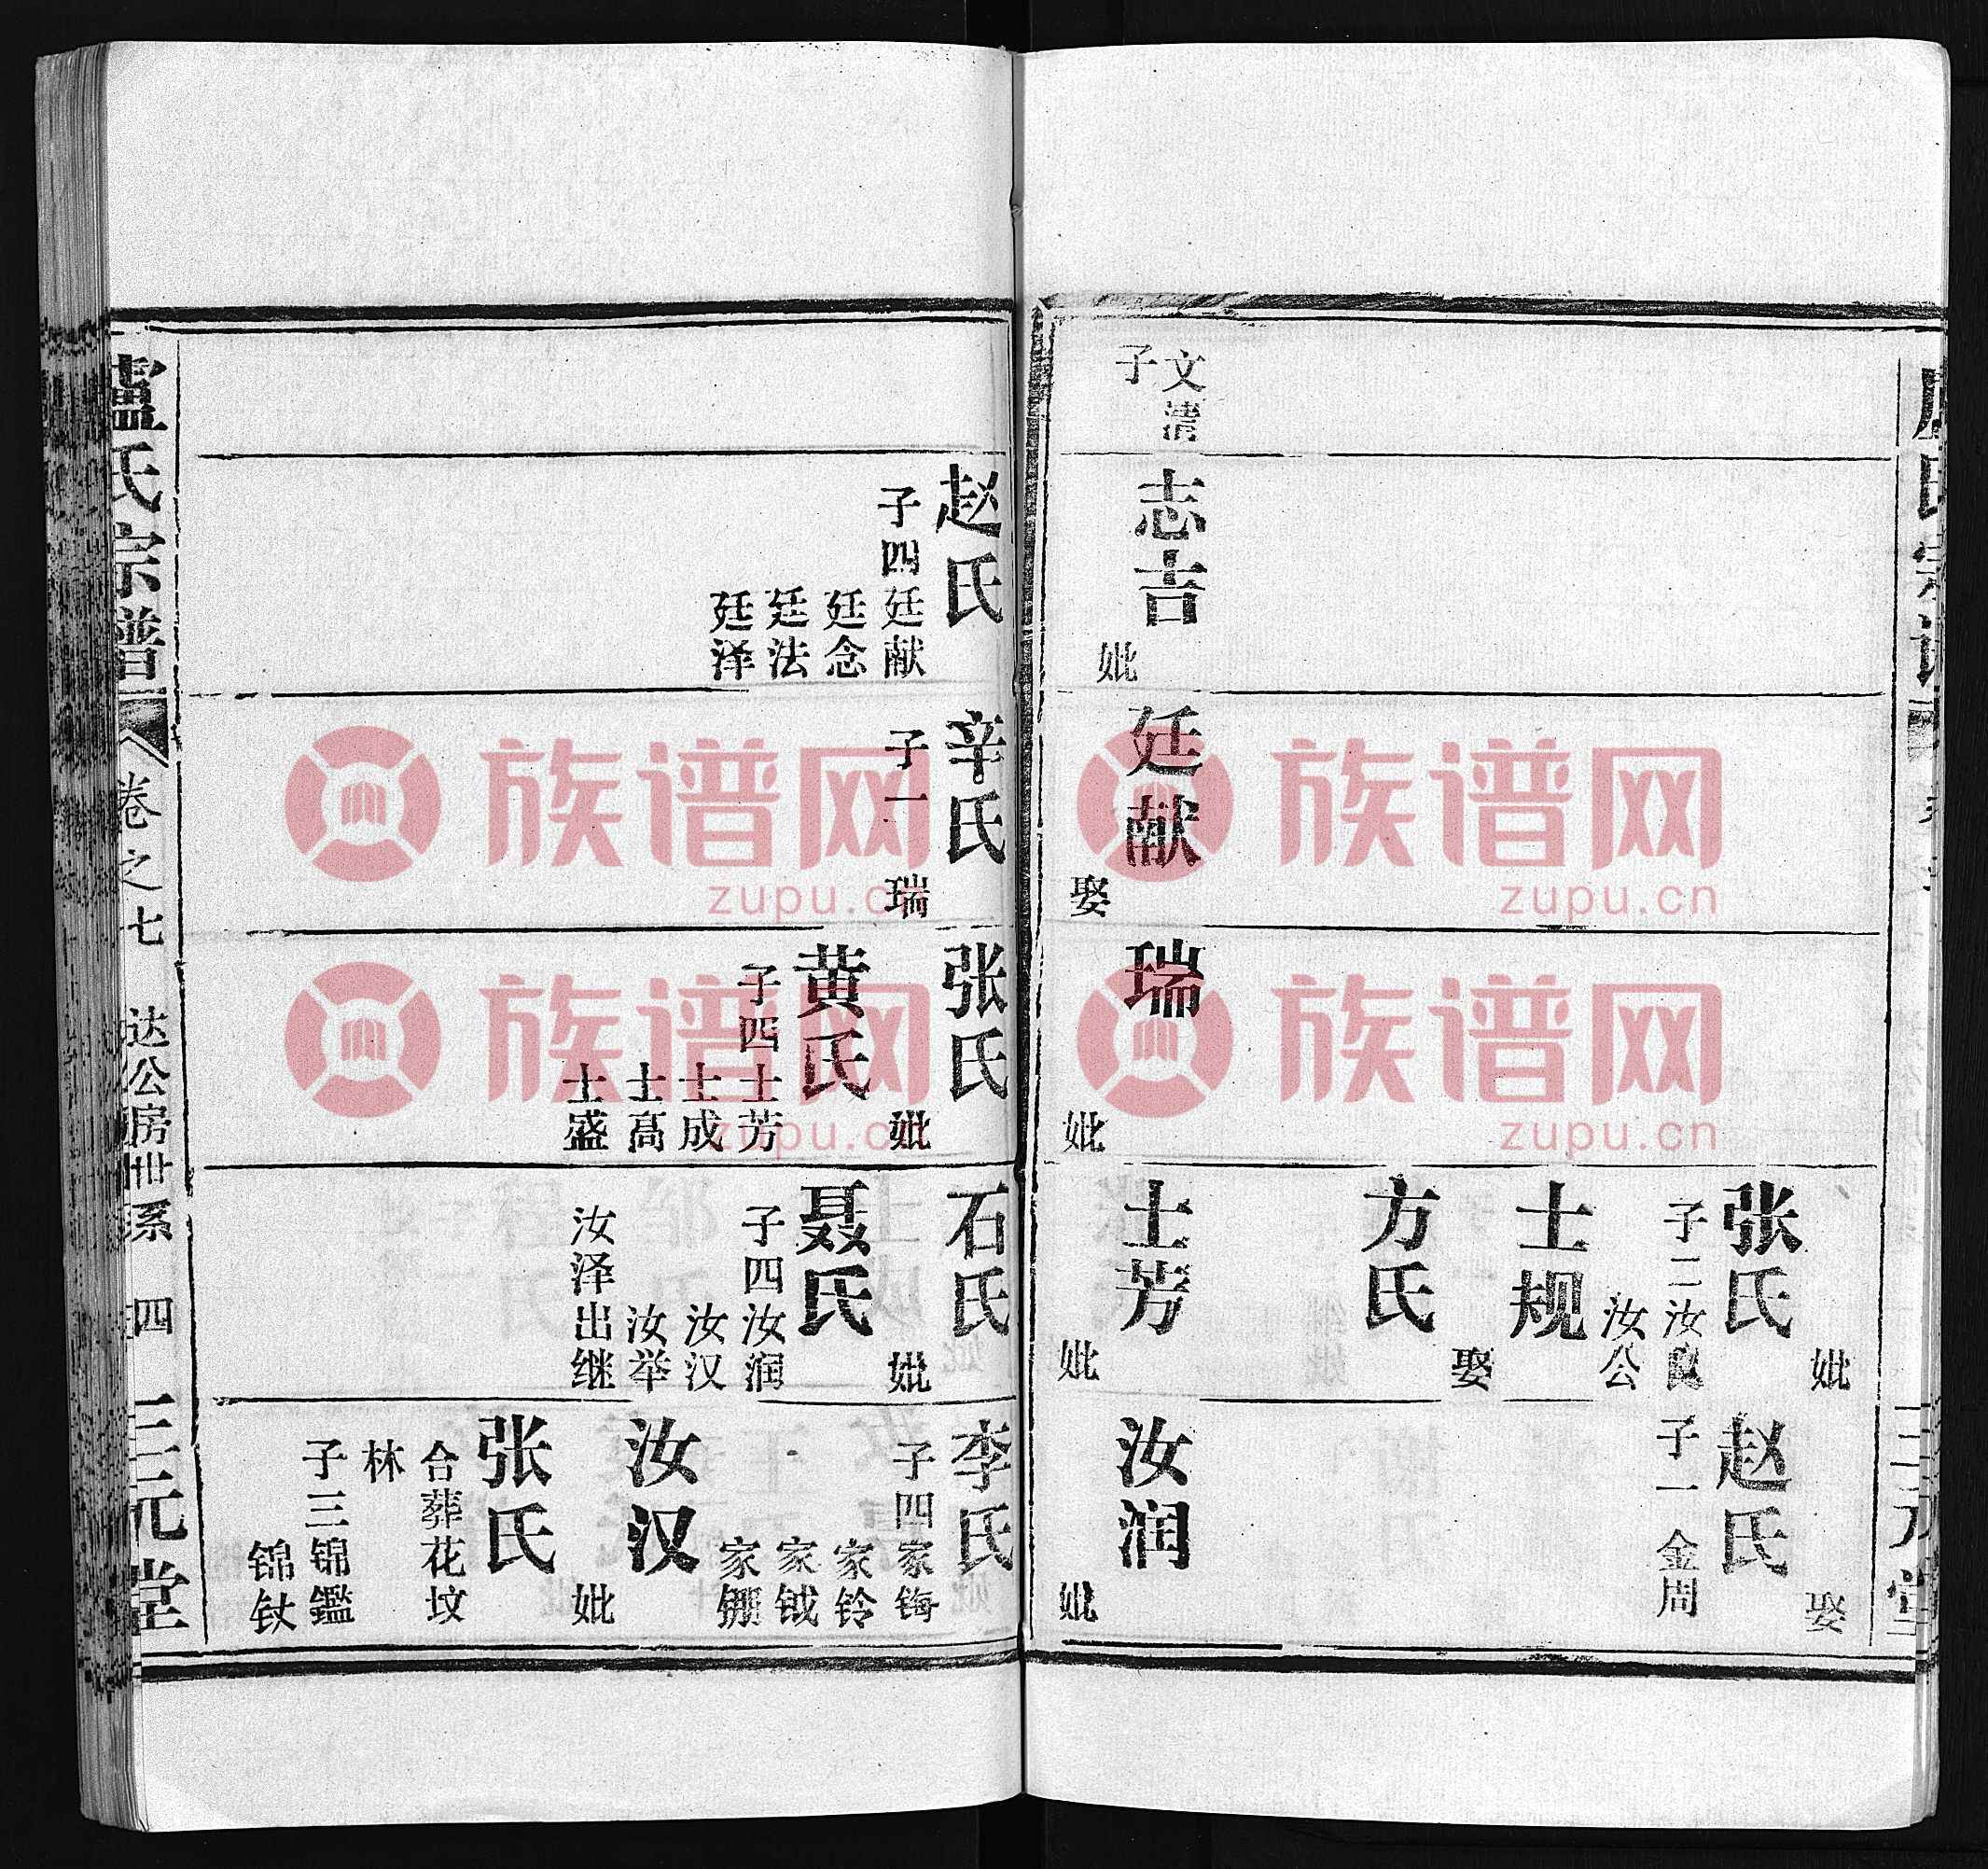 文清
子
志吉
妣
廷献
娶
瑞
妣
妣
张氏
子二汝良
汝公
士规
娶
方氏
士芳
妣
娶
赵氏
子一 金周
汝润
妣
赵氏
子四廷献
廷念
廷法
廷泽
辛氏
子一 瑞
张氏
妣
黄氏
子四士芳
士成
士高
士盛
石氏
妣
聂氏
子四汝润
汝汉
汝举
汝泽出继
李氏
子四家𬭬
家铃
家钺
家
汝汉
妣
张氏
合葬花坟
林
子三锦鑑
锦钬
卢氏宗谱
卷之七
达公房世系 四
三元堂
族谱网
zupu.cn
族谱网
zupu.cn
族谱网
zupu.cn
族谱网
zupu.cn